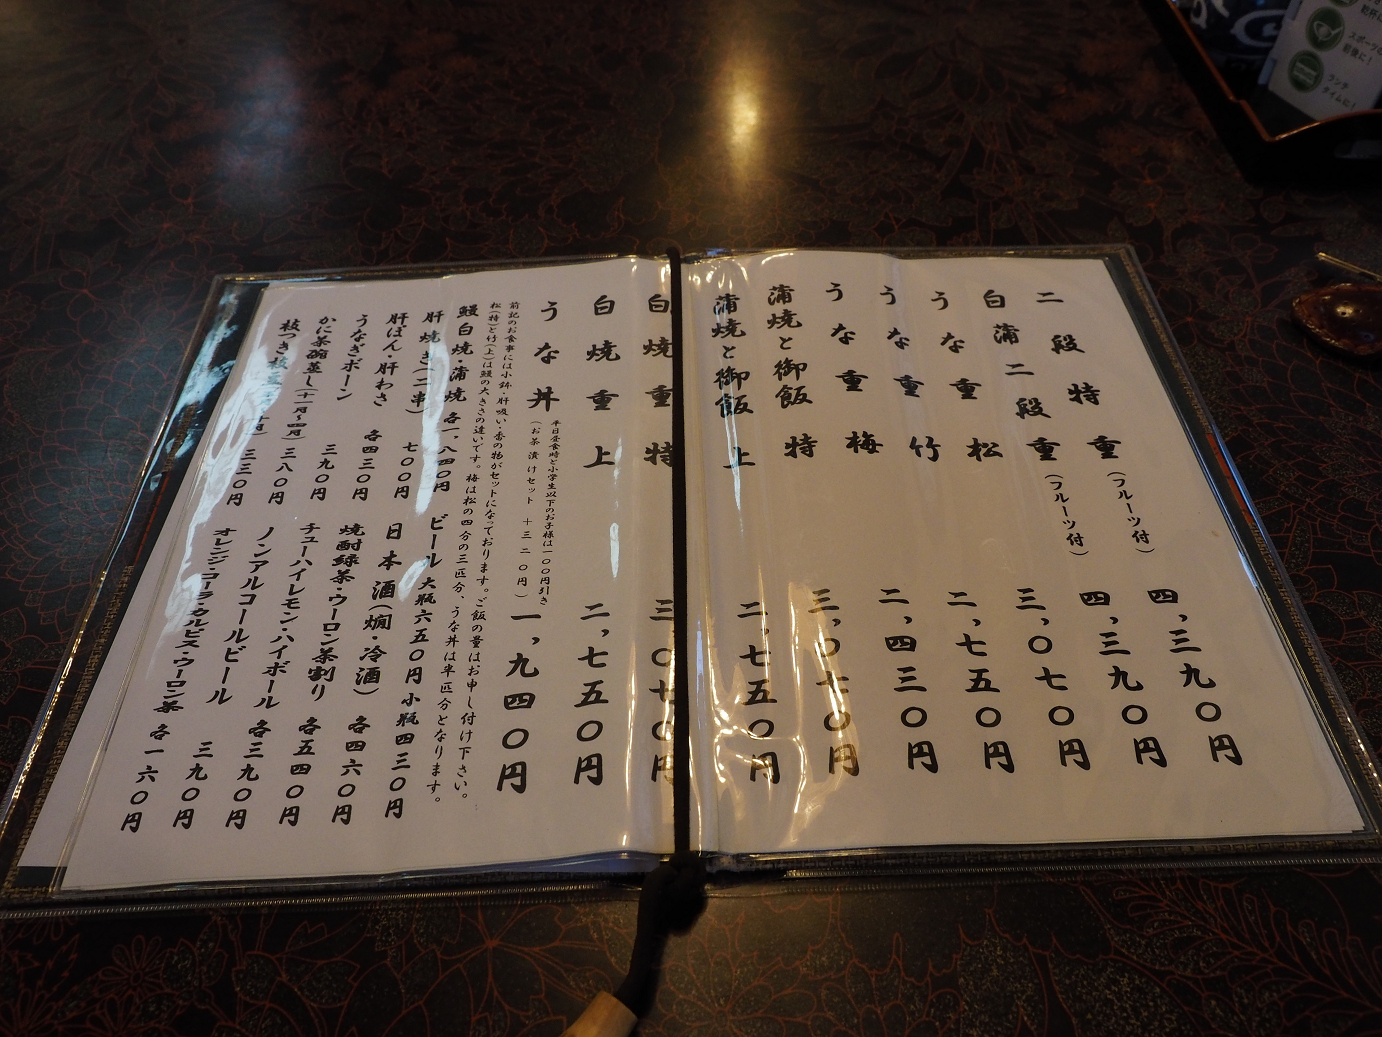 二段特重(フルーツ付) 四,三九〇円
白蒲二段重(フルーツ付) 四,三九〇円
うな重 松 三,〇七〇円
うな重 竹 二,七五〇円
うな重 梅 二,四三〇円
蒲焼と御飯 特 三,〇七〇円
蒲焼と御飯 上 二,七五〇円
白焼重 特 三,〇七〇円
白焼重 上 二,七五〇円
うな丼 一,九四〇円
平日昼食時と小学生以下のお子様は一〇〇円引き
(お茶漬けセット +三二〇円)
前記のお食事には小鉢・肝吸い・香の物がセットになっております。ご飯の量はお申し付け下さい。
松(特)と竹(上)は鰻の大きさの違いです。梅は松の四分の三匹分、うな丼は半匹分となります。
鰻白焼・蒲焼 各一,八四〇円
肝焼き(二串) 七〇〇円
肝ぽん・肝わさ 各四三〇円
うなぎボーン 三九〇円
かに茶碗蒸し(十一月~四月) 三八〇円
枝つき枝 三三〇円
ビール 大瓶六五〇円 小瓶四三〇円
日本酒(燗・冷酒) 各四六〇円
焼酎緑茶・ウーロン茶割り 各五四〇円
チューハイレモン・ハイボール 各三九〇円
ノンアルコールビール 三九〇円
オレンジ・コーラ・カルピス・ウーロン茶 各一六〇円
スポーツの
前後に!
ランチ
タイムに!